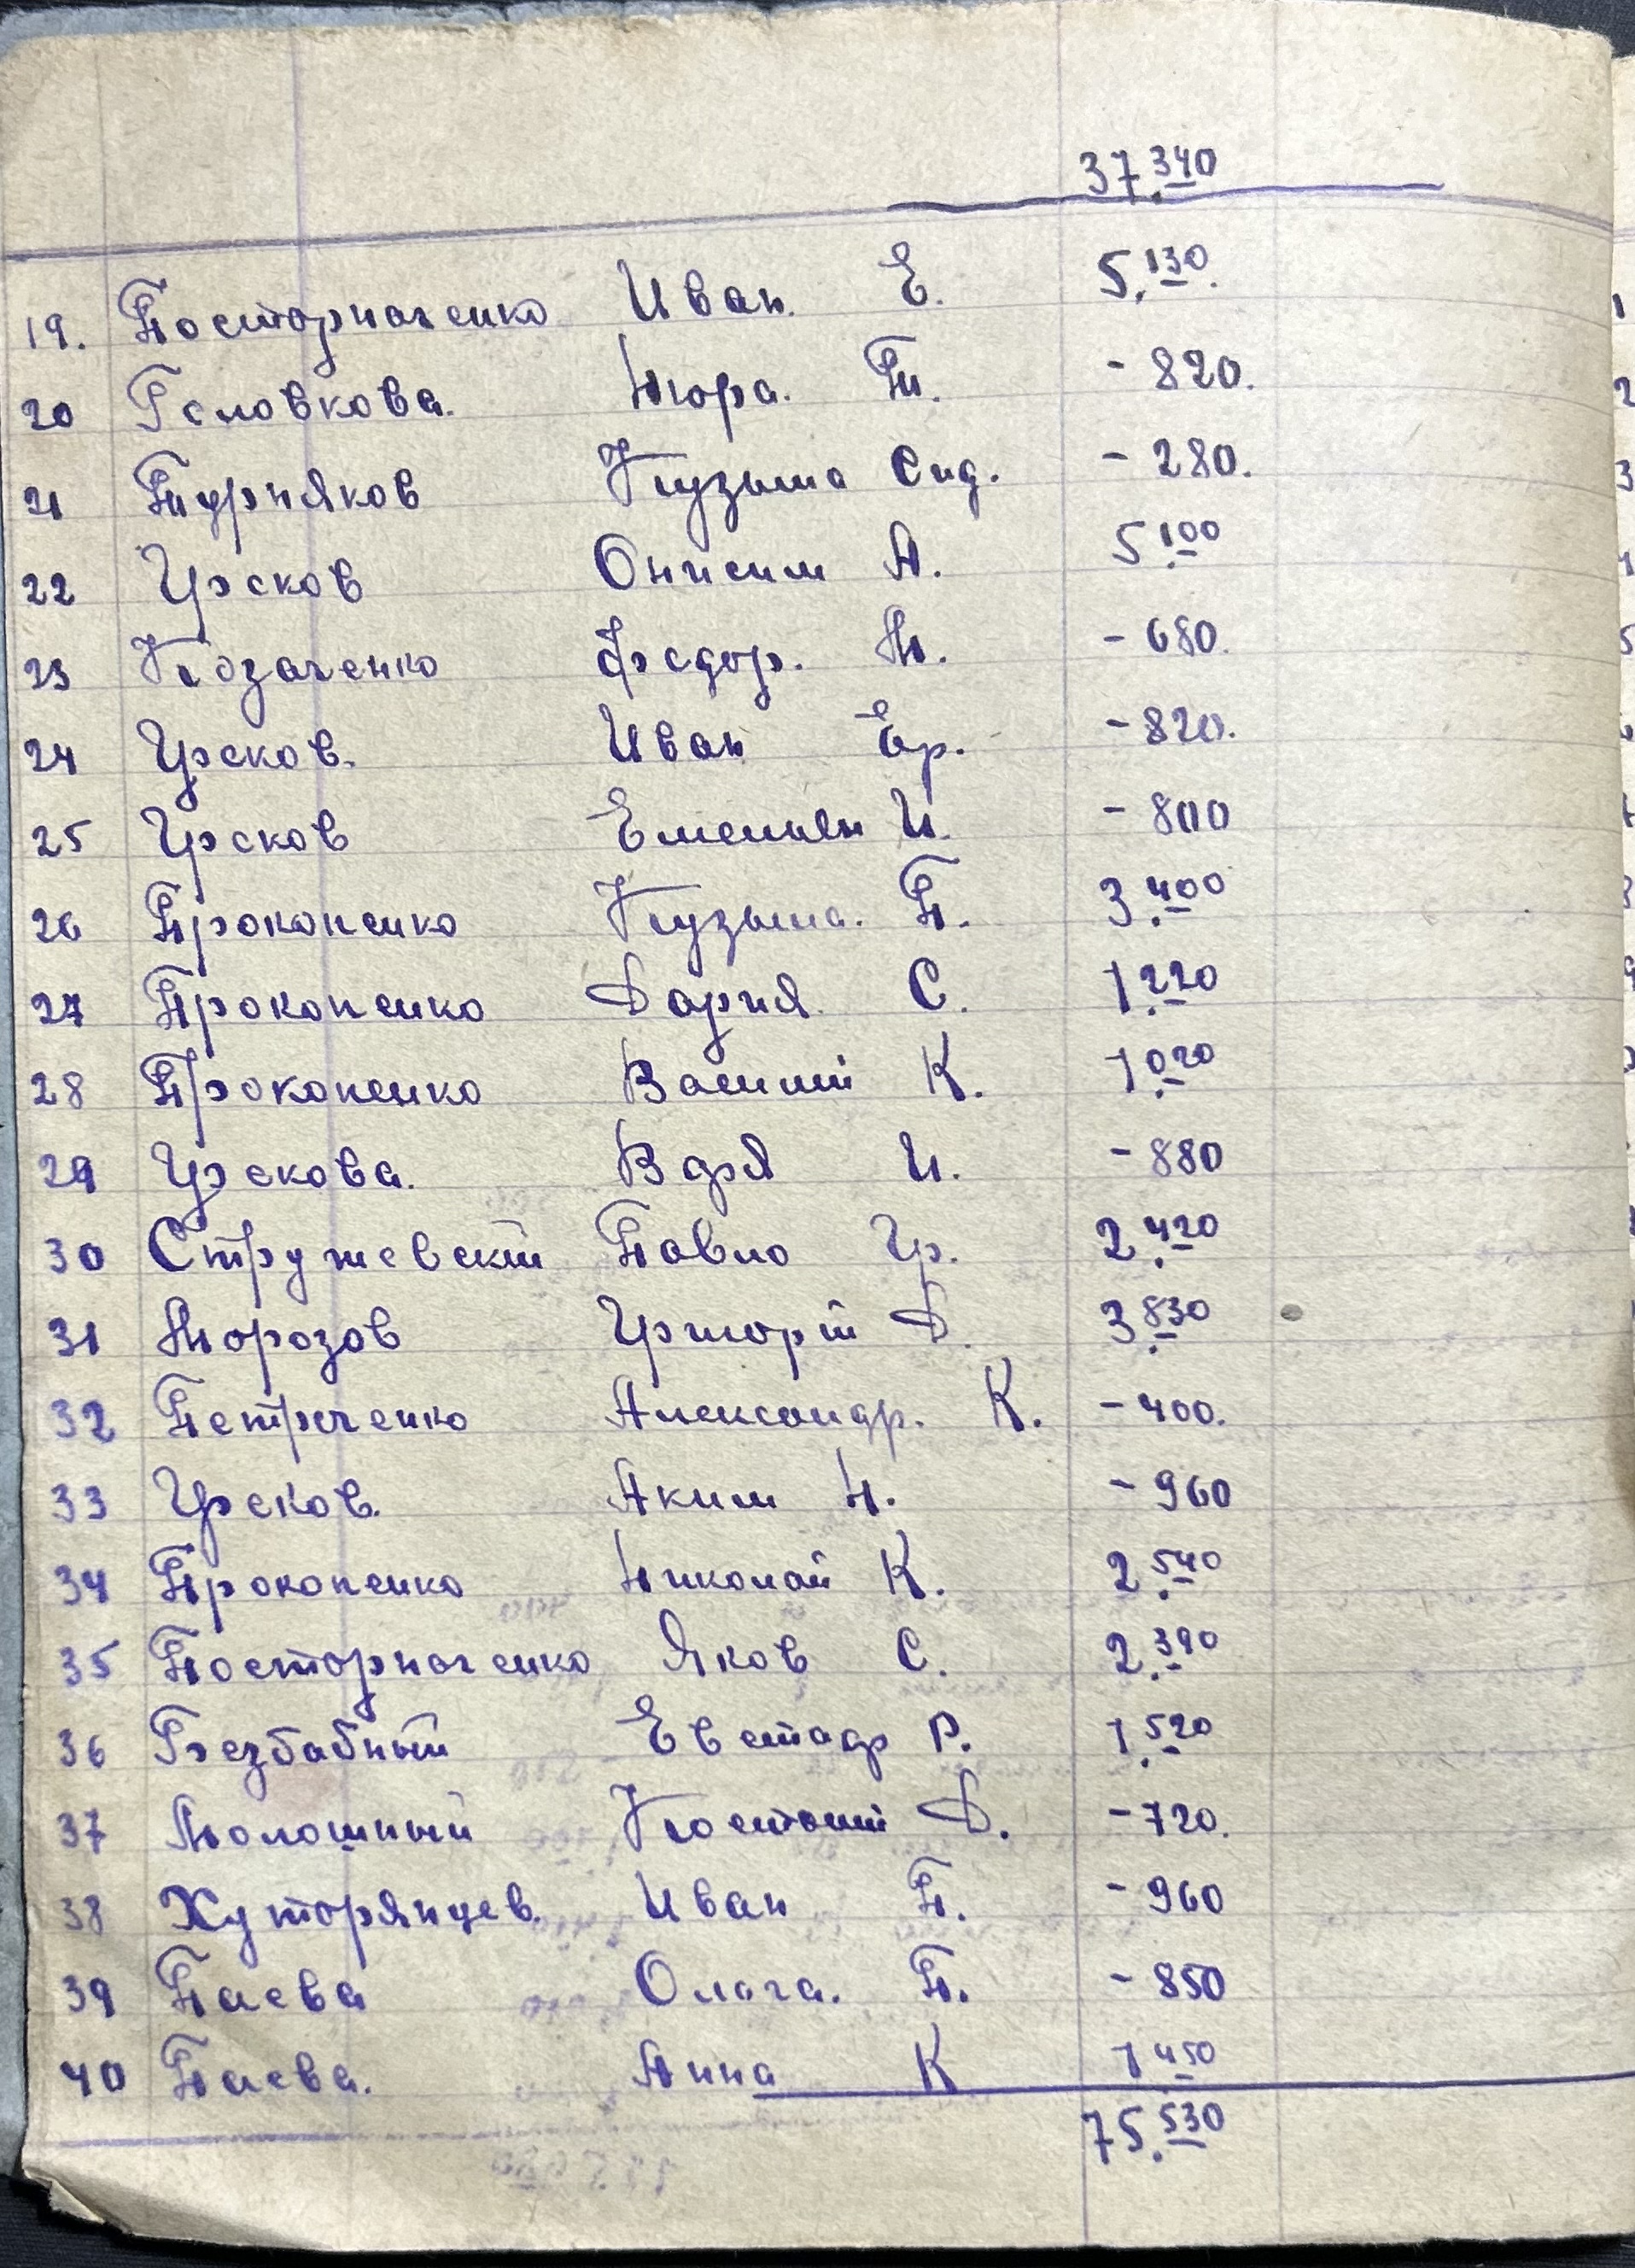 37.340
19. Посторначенко Иван Е. 5.130.
20 Головкова. Нюра. П. - 820.
21 Пурняков Кузьма Сид. - 280.
22 Ческов Онисим А. 5.100
23 Козаченко Федор. М. - 680.
24 Ческов. Иван Ер. - 820.
25 Ческов Емельян И. - 800
26 Прокопенко Кузьма. П. 3.400
27 Прокопенко Дария. С. 1.220
28 Прокопенко Василий К. 1.020
29 Ческова. Варя И. - 880
30 Стружевский Павло Гр. 2.420
31 Морозов Григорий Д. 3.830
32 Петреченко Александр. К. - 400.
33 Ческов. Аким Н. - 960
34 Прокопенко Николай К. 2.540
35 Посторначенко Яков С. 2.390
36 Безбабный Р. 1.520
37 Молошный Д. - 720.
38 Хуторянцев. Иван П. - 960
39 Паева Ольга. П. - 850
40 Паева. Анна К 1.450
75.530